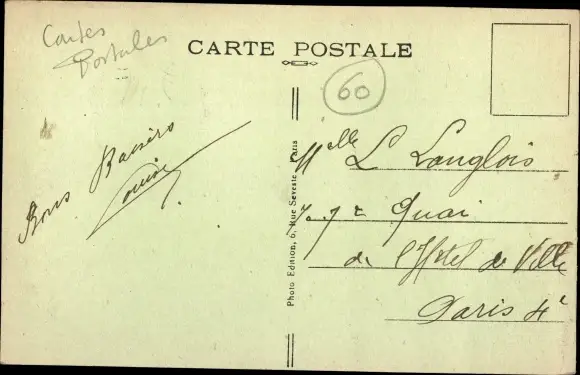 Cartes
Postales
CARTE POSTALE
60
Bons Baisers
Louise
Photo Edition, 6, Rue Seveste Paris
Mlle L Langlois
Quai
de l'Hôtel de Ville
Paris 4e